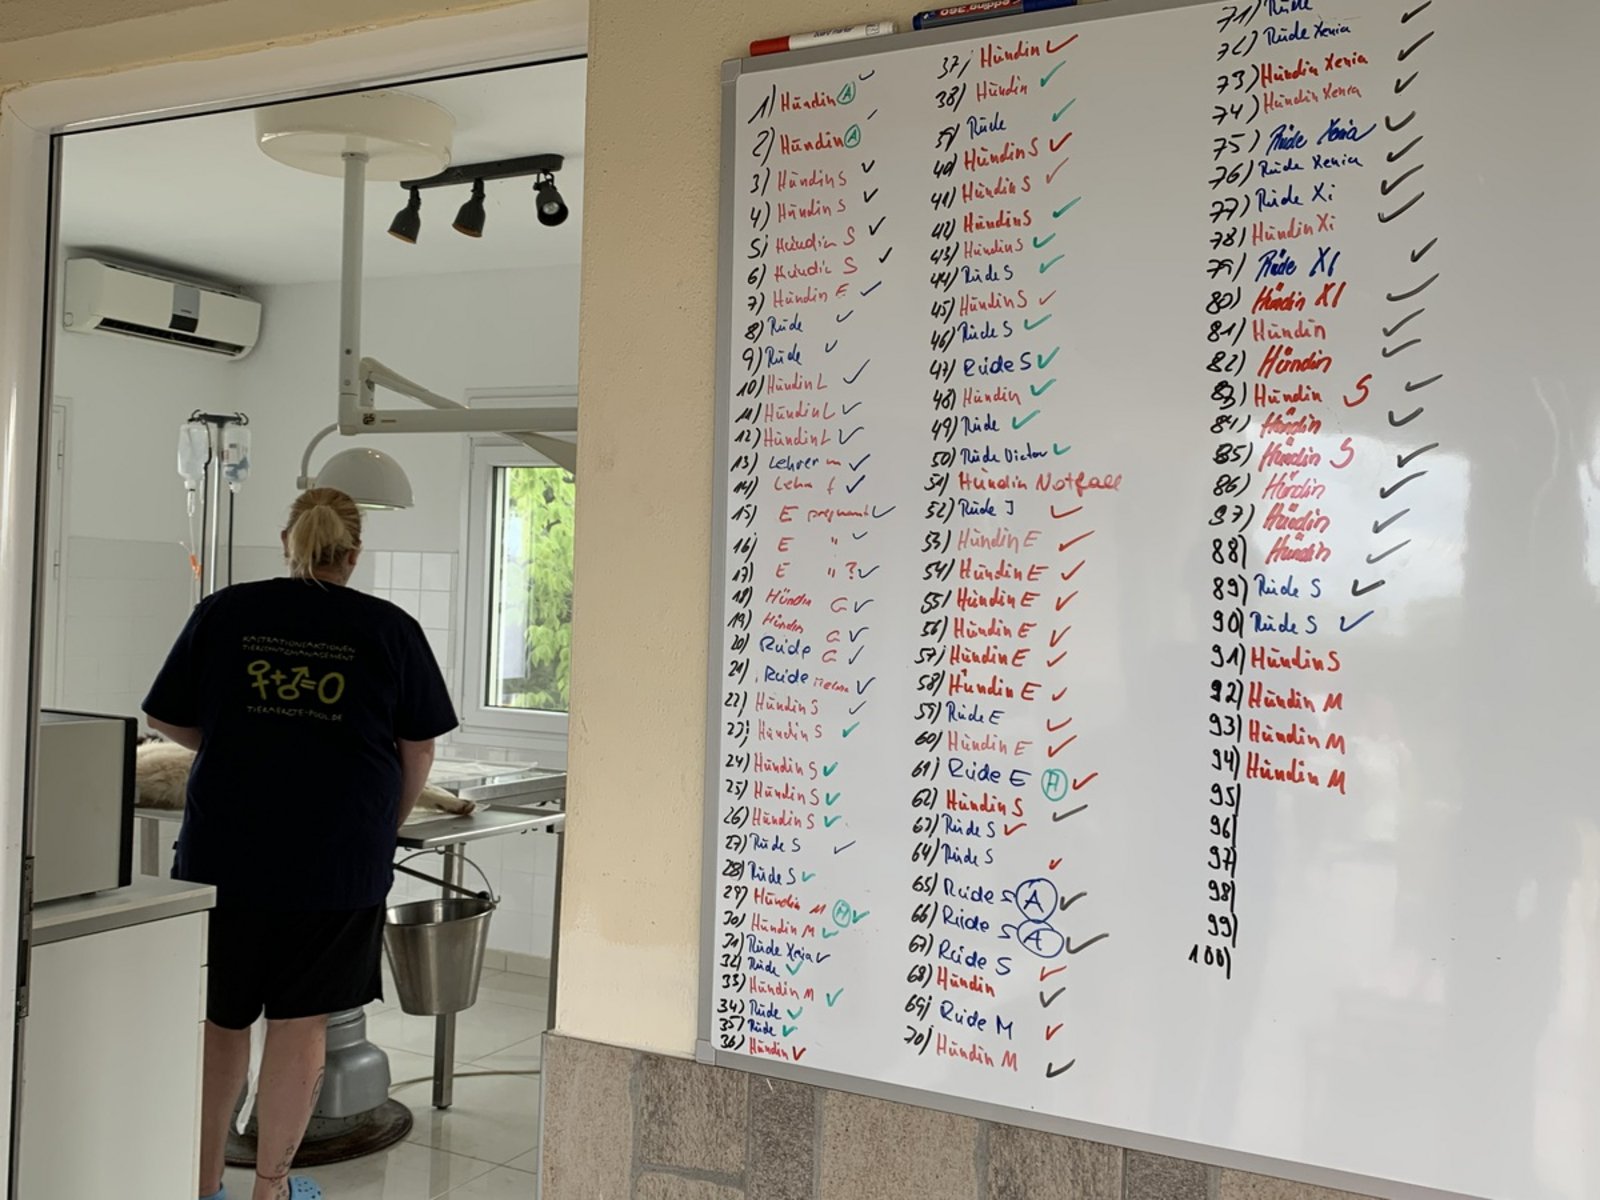 board marker
edding 360
1) Hündin A ✓
2) Hündin A ✓
3) Hündin S ✓
4) Hündin S ✓
5) Hündin S ✓
6) Hündin S ✓
7) Hündin E ✓
8) Rüde ✓
9) Rüde ✓
10) Hündin L ✓
11) Hündin L ✓
12) Hündin L ✓
13) Lehrer m ✓
14) Lehr f ✓
15) E pregnant ✓
16) E " ✓
17) E " ? ✓
18) Hündin G ✓
19) Hündin G ✓
20) Rüde G ✓
21) Rüde ✓
22) Hündin S ✓
23) Hündin S ✓
24) Hündin S ✓
25) Hündin S ✓
26) Hündin S ✓
27) Rüde S ✓
28) Rüde S ✓
29) Hündin M A ✓
30) Hündin M ✓
31) Rüde Xenia ✓
32) Rüde ✓
33) Hündin M ✓
34) Rüde ✓
35) Rüde ✓
36) Hündin ✓
37) Hündin ✓
38) Hündin ✓
39) Rüde ✓
40) Hündin S ✓
41) Hündin S ✓
42) Hündin S ✓
43) Hündin S ✓
44) Rüde S ✓
45) Hündin S ✓
46) Rüde S ✓
47) Rüde S ✓
48) Hündin ✓
49) Rüde ✓
50) Rüde Victor ✓
51) Hündin Notfall
52) Rüde J ✓
53) Hündin E ✓
54) Hündin E ✓
55) Hündin E ✓
56) Hündin E ✓
57) Hündin E ✓
58) Hündin E ✓
59) Rüde E ✓
60) Hündin E ✓
61) Rüde E A ✓
62) Hündin S ✓
63) Rüde S ✓
64) Rüde S ✓
65) Rüde S A ✓
66) Rüde S A ✓
67) Rüde S ✓
68) Hündin ✓
69) Rüde M ✓
70) Hündin M ✓
71) Rüde ✓
72) Rüde Xenia ✓
73) Hündin Xenia ✓
74) Hündin Xenia ✓
75) Rüde Xenia ✓
76) Rüde Xenia ✓
77) Rüde Xi ✓
78) Hündin Xi ✓
79) Rüde XI ✓
80) Hündin XI ✓
81) Hündin ✓
82) Hündin ✓
83) Hündin S ✓
84) Hündin ✓
85) Hündin S ✓
86) Hündin ✓
87) Hündin ✓
88) Hündin ✓
89) Rüde S ✓
90) Rüde S ✓
91) Hündin S
92) Hündin M
93) Hündin M
94) Hündin M
95)
96)
97)
98)
99)
100)
KASTRATIONSAKTIONEN
TIERSCHUTZMANAGEMENT
♀+♂=0
TIERAERZTE-POOL.DE